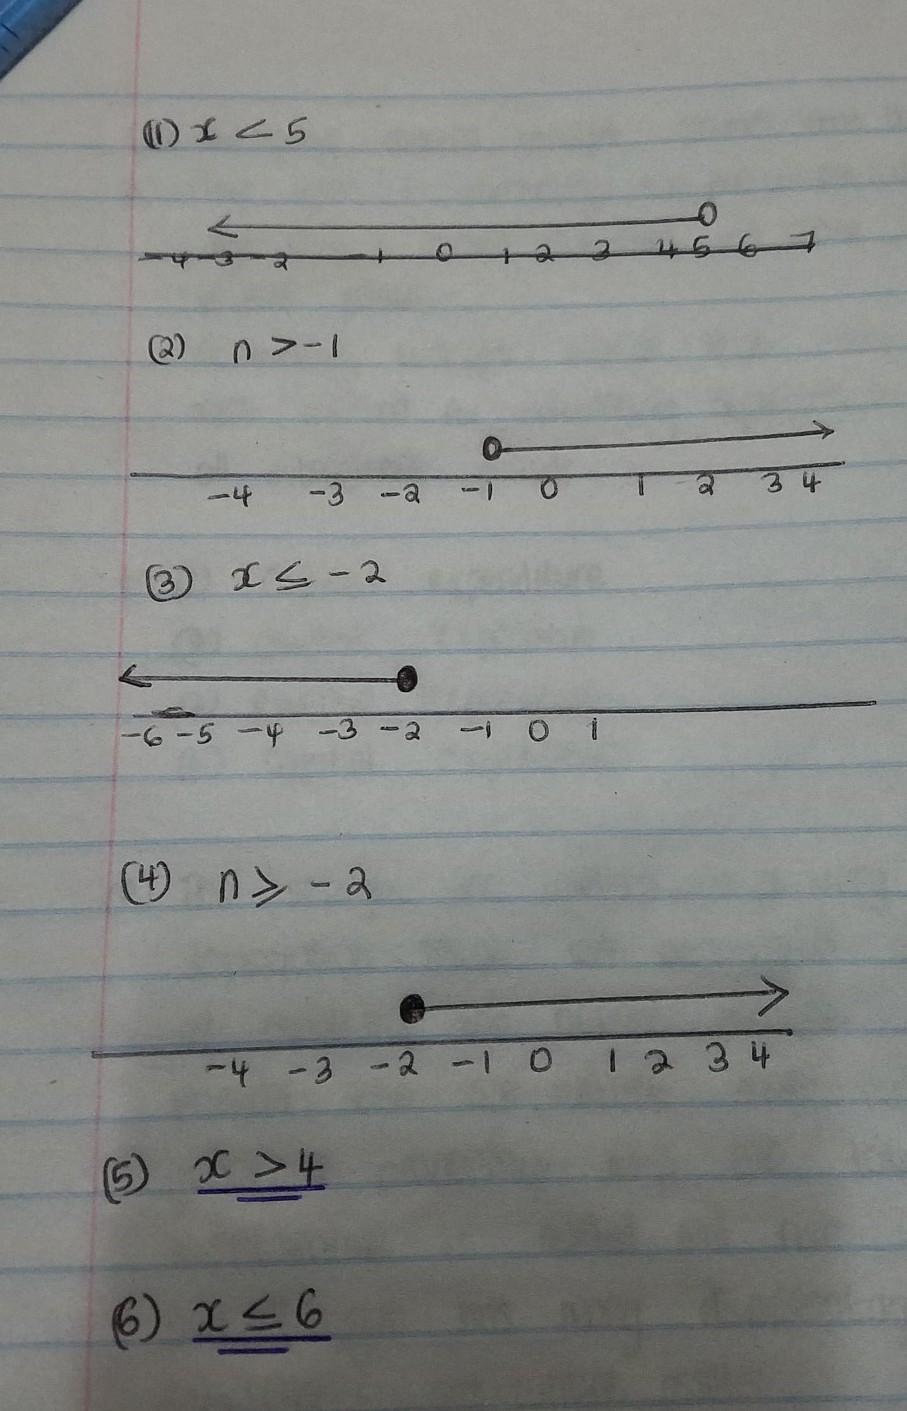 (1) x < 5
-4 -3 -2 -1 0 1 2 3 4 5 6 7
(2) n > -1
-4 -3 -2 -1 0 1 2 3 4
(3) x ≤ -2
-6 -5 -4 -3 -2 -1 0 1
(4) n ≥ -2
-4 -3 -2 -1 0 1 2 3 4
(5) x > 4
(6) x ≤ 6